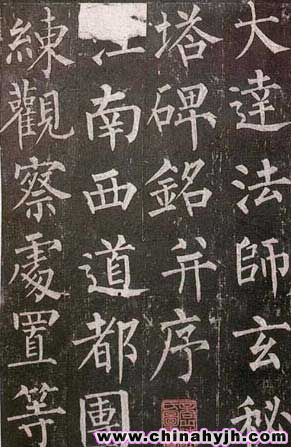 大達法師玄秘
塔碑銘并序
江南西道都團
練觀察處置等
www.chinahyjh.com